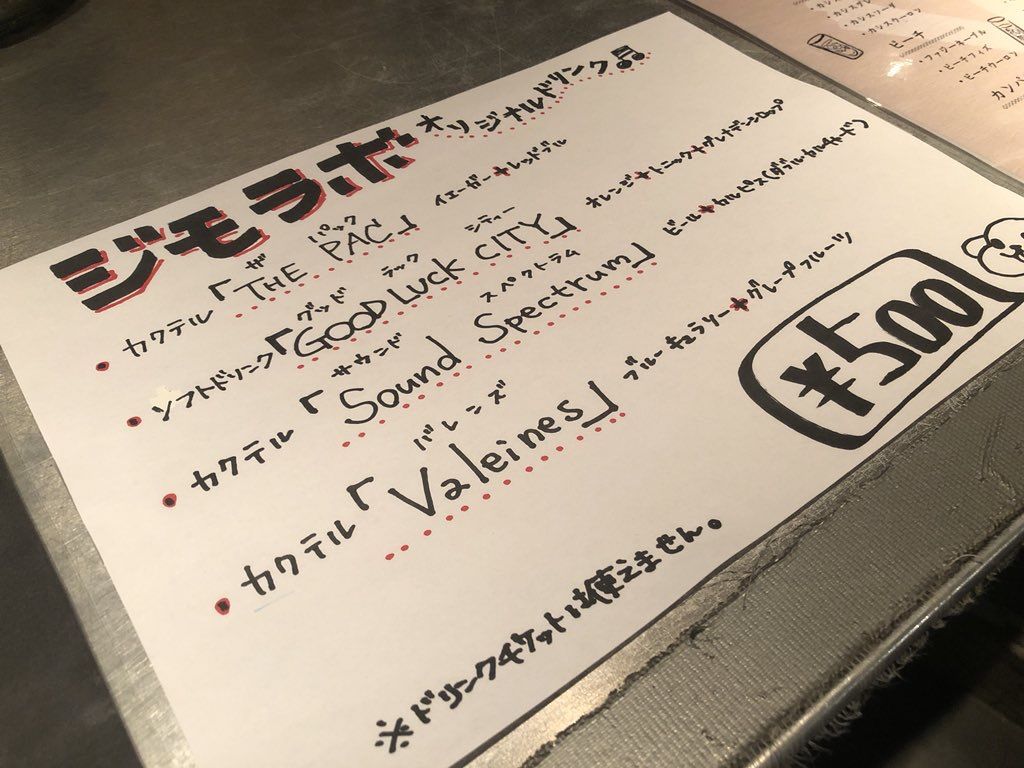 ジモラボ オリジナルドリンク♫
・カクテル「THE PAC」 イエーガー+レッドブル
ザ パック
・ソフトドリンク「GOOD LUCK CITY」 オレンジ+トニック+グレナデンシロップ
グッド ラック シティー
・カクテル「Sound Spectrum」 ビール+カルピス(ダブルカルチャード)
サウンド スペクトラム
・カクテル「Valeines」 ブルーキュラソー+グレープフルーツ
バレンズ
¥500
※ドリンクチケットは使えません。
・カシスソーダ
・カシスウーロン
ピーチ
・ファジーネーブル
・ピーチフィズ
・ピーチウーロン